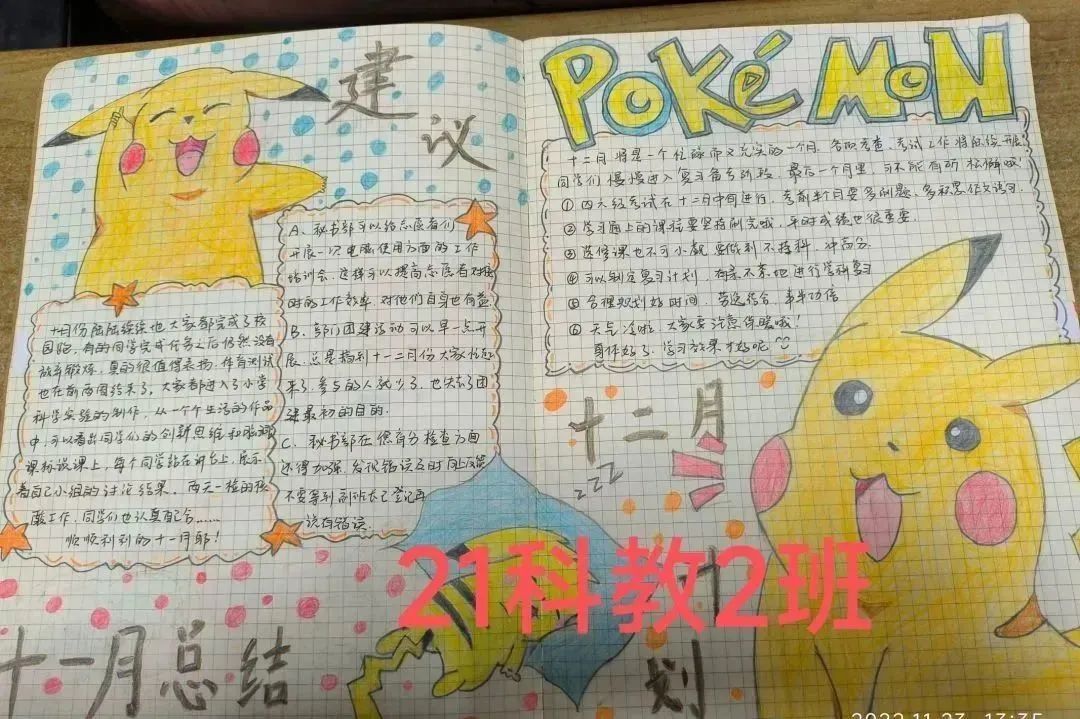 建
议
A、秘书部可以给志愿者们
开展一次电脑使用方面的工作
培训会,这样可以提高志愿者
的工作效率,对他们自身也有益
B、部门团建活动可以早一点开
展,总是拖到十一二月份大家忙起
来了,参与的人就少了,也失去了团
建最初的目的.
C、秘书部在德育分检查方面
还得加强,发现错误及时向上反馈
不要等到副班长已登记再
说有错误.
十月份陆陆续续地大家都完成了校
园跑,有的同学完成任务之后仍然没有
放弃锻炼,真的很值得表扬,体育测试
也在前两周结束了,大家都进入了小学
科学实验的制作,从一个个生活的作品
中,可以看出同学们的创新思维和
课标说课上,每个同学站在讲台上,展示
着自己小组的讨论结果,两天一检的核
酸工作,同学们也认真配合……
顺顺利利的十一月耶!
十一月总结
POKéMON
十二月将是一个忙碌而又充实的一个月,各职考查、考试工作将陆续开展
同学们慢慢进入复习备考阶段,最后一个月里,可不能有所松懈哦!
① 四六级考试在十二月中旬进行,考前半个月要多刷题、多积累作文语句.
② 学习通上的课程要坚持刷完哦,平时成绩也很重要.
③ 选修课也不可小觑,要做到不挂科,冲高分.
④ 可以制定复习计划,有条不紊地进行学科复习
⑤ 合理规划好时间,劳逸结合,事半功倍
⑥ 天气冷啦,大家要注意保暖哦!
身体好了,学习效果才好呢
十二月
zzz
计
划
21科教2班
2022.11.23 13:35